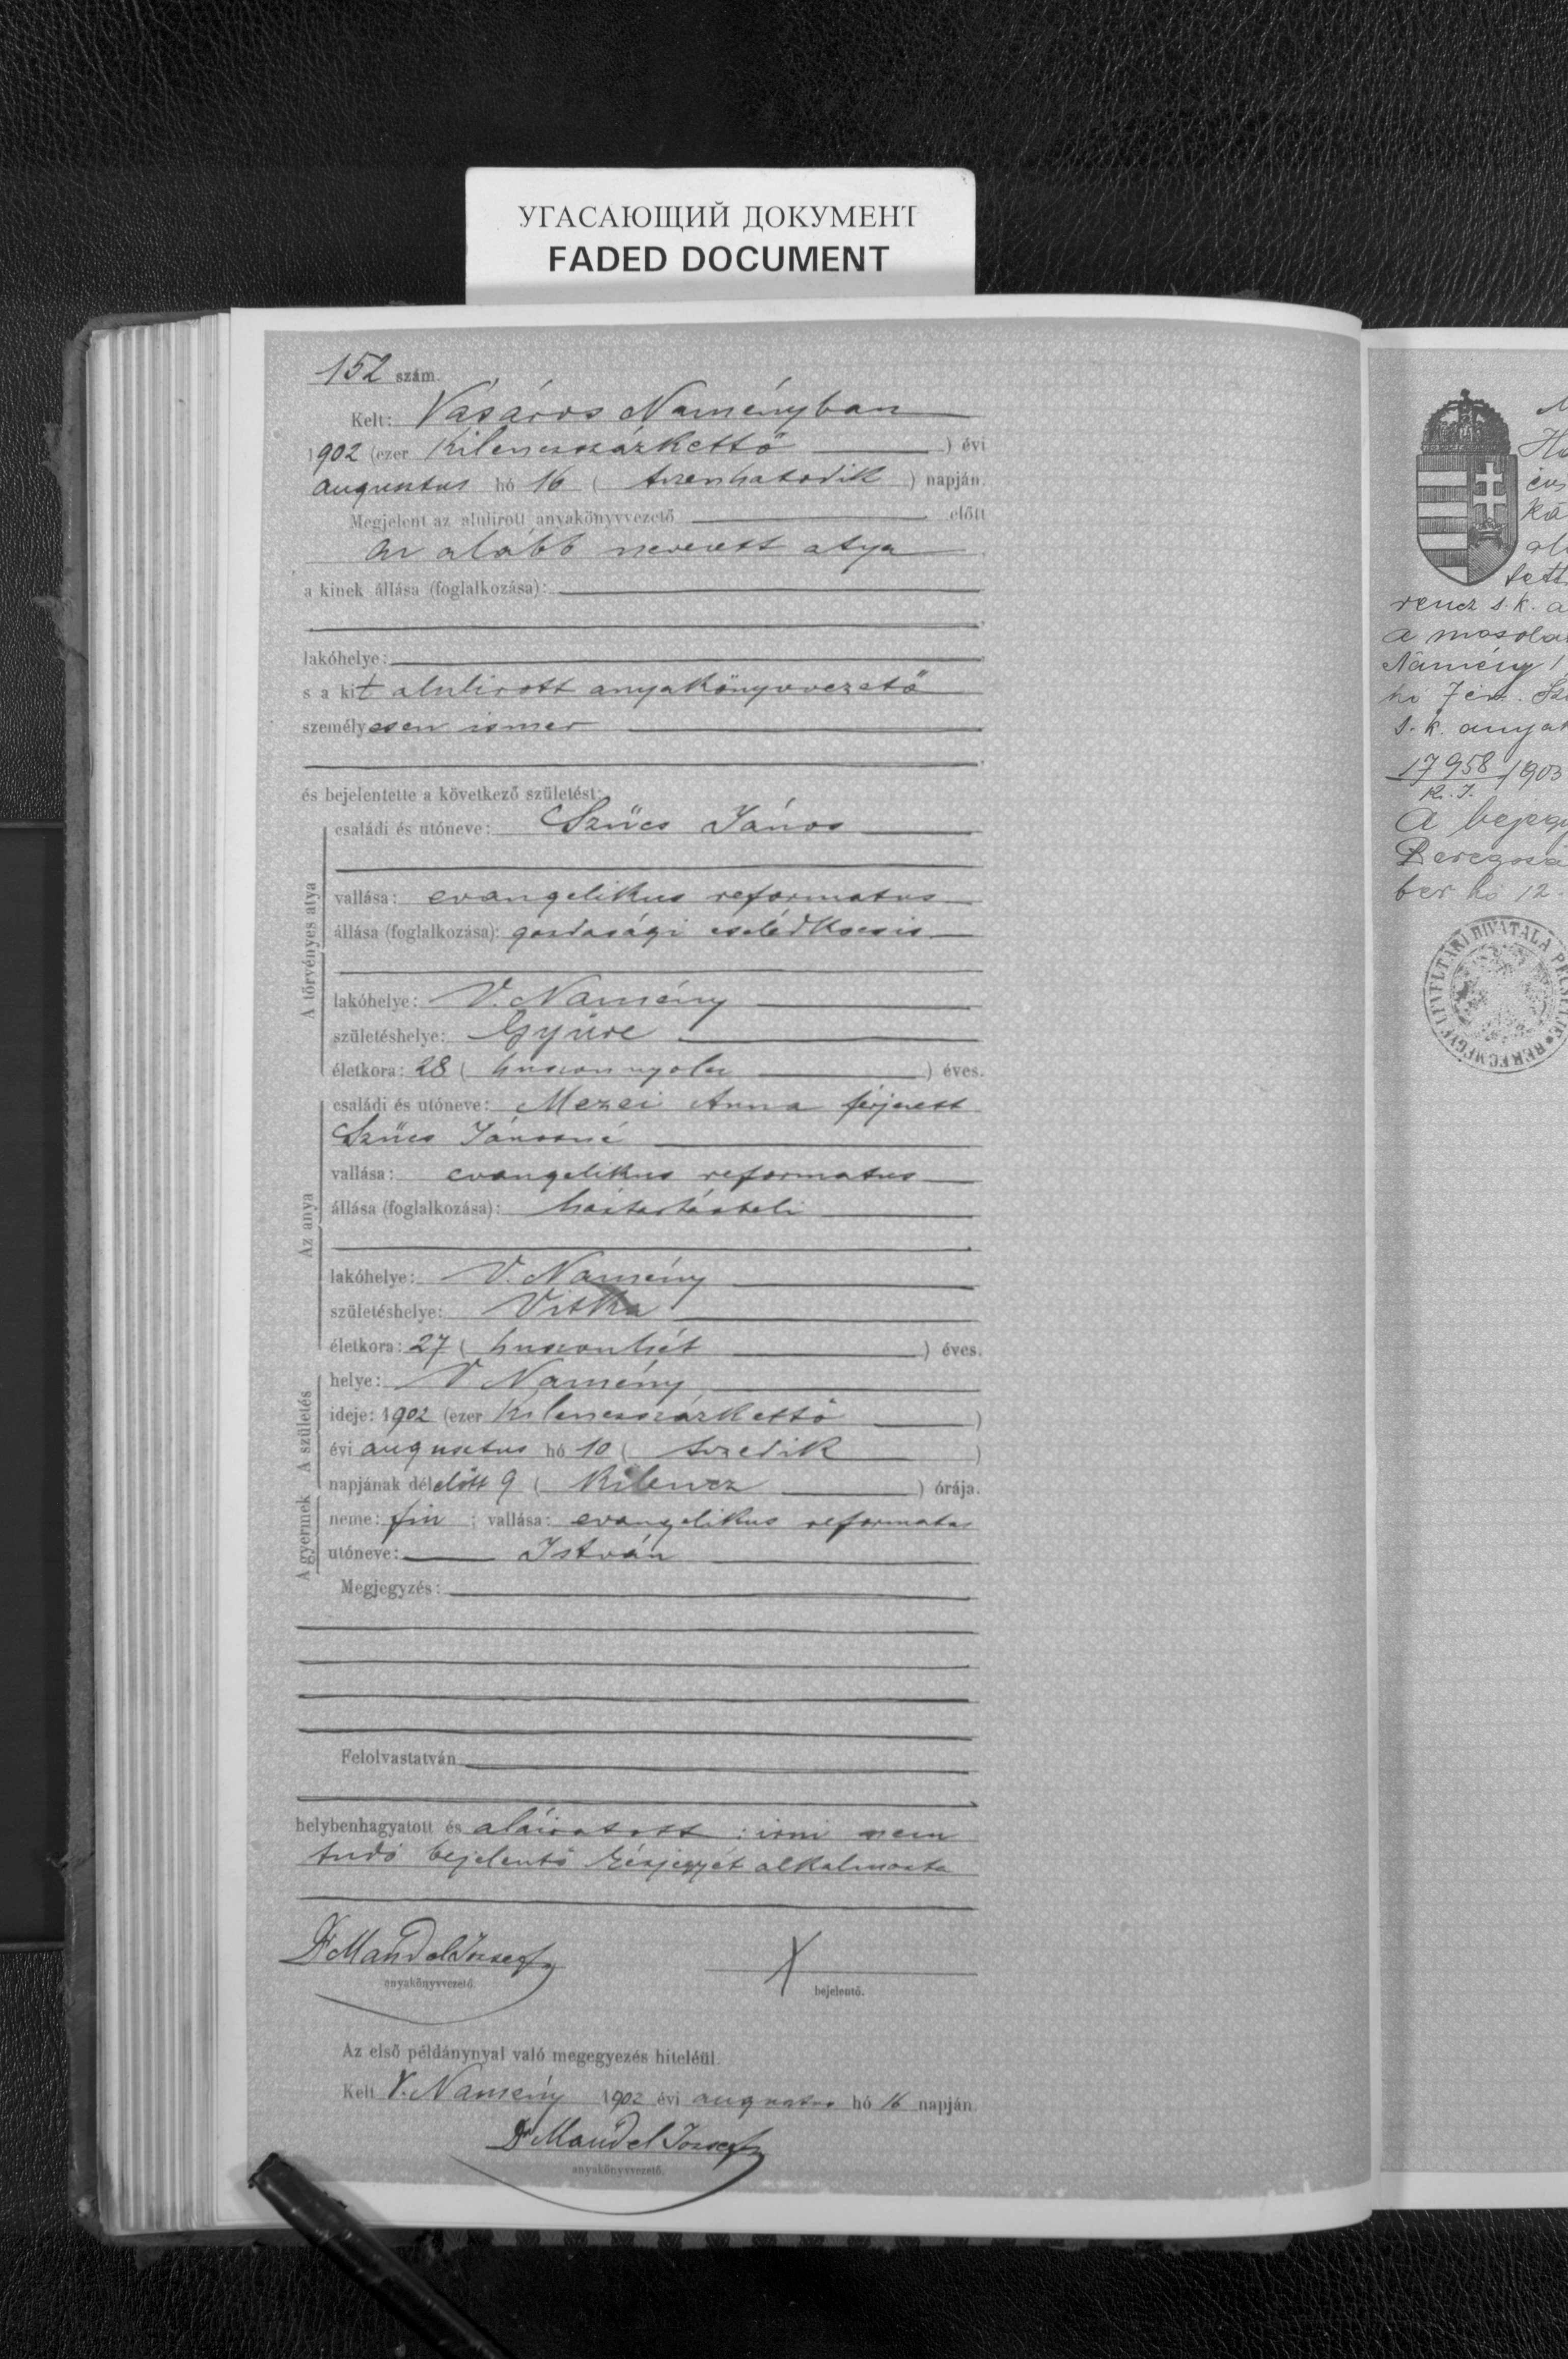 УГАСАЮЩИЙ ДОКУМЕНТ
FADED DOCUMENT
152 szám.
Kelt: Vásáros Naményban
1902 (ezer kilenczszázkettő ) évi
augusztus hó 16 ( tizenhatodik ) napján.
Megjelent az alulirott anyakönyvvezető előtt
az alább nevezett atya
a kinek állása (foglalkozása):
lakóhelye:
s a kit alulirott anyakönyvvezető
személyesen ismer
és bejelentette a következő születést:
A törvényes atya
családi és utóneve: Szücs János
vallása: evangelikus reformatus
állása (foglalkozása): gazdasági cselédkocsis
lakóhelye: V. Namény
születéshelye: Gyüre
életkora: 28 ( huszonnyolcz ) éves.
Az anya
családi és utóneve: Mezei Anna férjezett
Szücs Jánosné
vallása: evangelikus reformatus
állása (foglalkozása): háztartásbeli
lakóhelye: V. Namény
születéshelye: Vitka
életkora: 27 ( huszonhét ) éves.
A születés
helye: V Namény
ideje: 1902 (ezer kilenczszázkettő )
évi augusztus hó 10 ( tizedik )
napjának délelőtt 9 ( kilencz ) órája.
A gyermek
neme: fiu ; vallása: evangelikus reformatus
utóneve: István
Megjegyzés:
Felolvastatván
helybenhagyatott és aláiratott : irni nem
tudó bejelentő kézjegyét alkalmazta
Dr Mandel József
anyakönyvvezető.
X
bejelentő.
Az első példánynyal való megegyezés hiteléül.
Kelt V. Namény 1902 évi augusztus hó 16 napján.
Dr Mandel József
anyakönyvvezető.
rencz s.k. a
a másola
Namény 1
hó 7 én. Sz
s.k. anyak
17958/1903
K. I.
A bejegy
Beregszá
ber hó 12.